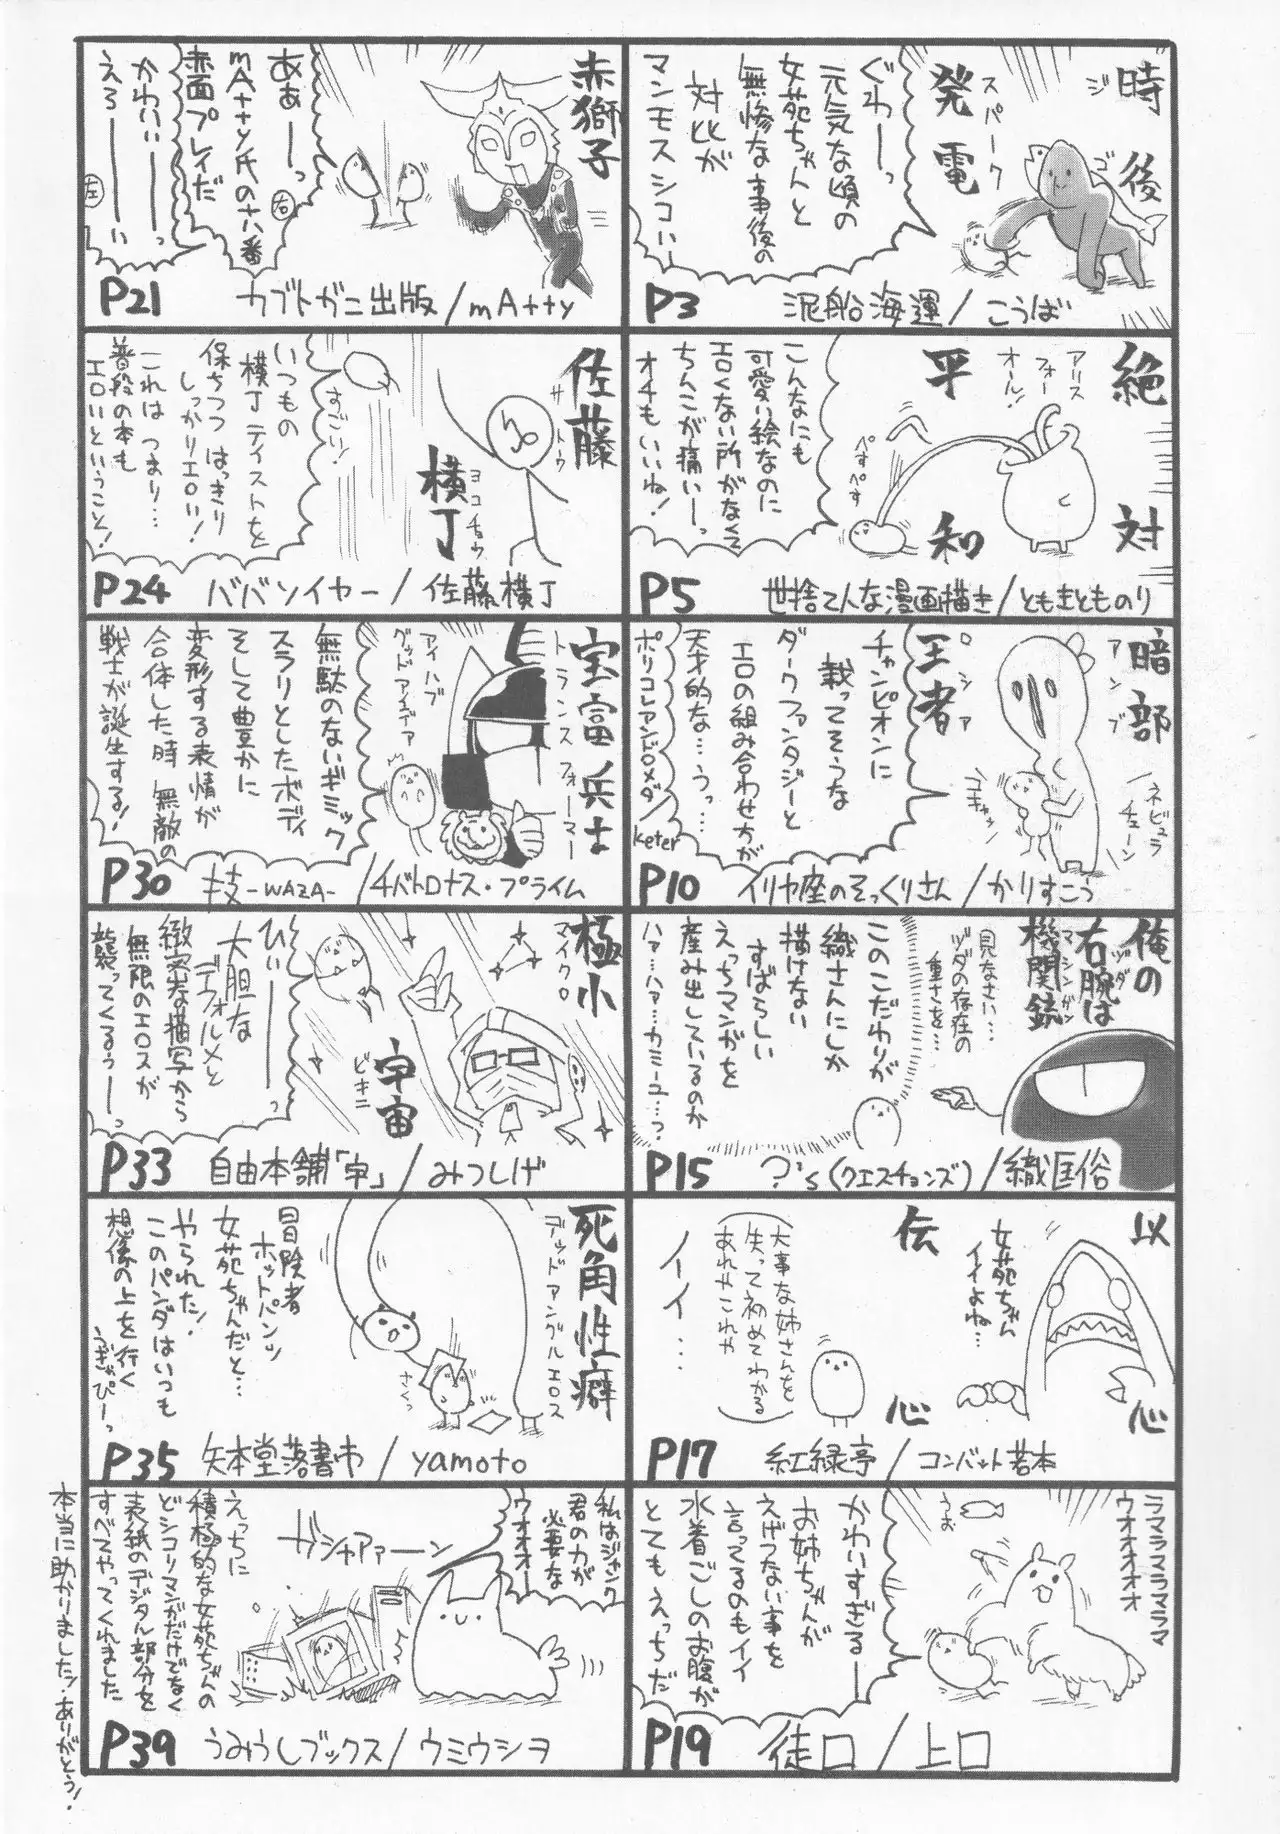 時後
ジゴ
発電
スパーク
ぐわーっ
元気な頃の
女苑ちゃんと
無惨な事後の
対比が
マンモスシコいー
P3
泥船海運/こうば
絶対
平和
アリス
フォー
オール!
ぺすぺす
こんなにも
可愛い絵なのに
エロくない所がなくて
ちんこが痛いーっ
オチもいいね!
P5
世捨て人な漫画描き/ともきとものり
暗部
アンブ
王者
ロシア
ネビュラ
チェーン
コキャッ
チャンピオンに
載ってそうな
ダークファンタジーと
エロの組み合わせ方が
天才的な…うっ…
ポリコレアンドロメダ/
keter
P10
イリヤ座のそっくりさん/かりすこう
俺の
右腕は
ヅダ
機関銃
マシンガン
見なさい…
ヅダの存在の
重さを…
このこだわりが
織さんにしか
描けない
すばらしい
えっちマンガを
産み出しているのか
ハァ…ハァ…カミーユ…っ
P15
?'s(クエスチョンズ)/織日俗
以心
伝心
女苑ちゃん
イイよね…
大事な姉さんを
失って初めてわかる
あれやこれや
イイ…
P17
紅緑亭/コンバット若本
ラマラマラマラマ
ウオオオオオ
うお
かわいすぎるー
お姉ちゃんが
えげつない事を
言ってるのもイイ
水着ごしのお腹が
とてもえっちだ
P19
徒口/上口
赤獅子
あぁーっ
mAtty氏の十八番
赤面プレイだ
かわいいーっ
えろーーい
右
左
P21
カブトガニ出版/mAtty
佐藤
サトウ
横丁
ヨコチョウ
すごい!
いつもの
横丁テイストを
保ちつつはっきり
しっかりエロい!
これはつまり…
普段の本も
エロいということ!
P24
ババソイヤー/佐藤横丁
宝富兵士
トランスフォーマー
アイハブ
グッドアイデア
無駄のないギミック
スラリとしたボディ
そして豊かに
変形する表情が
合体した時無敵の
戦士が誕生する!
P30
技-WAZA-/チバトロナス・プライム
極小
マイクロ
宇宙
ビキニ
ひぃーーっ
大胆な
デフォルメと
緻密な描写から
無限のエロスが
襲ってくるぅーっ
P33
自由本舗「宇」/みつしげ
死角性癖
デッドアングルエロス
さくっ
冒険者
ホットパンツ
女苑ちゃんだと…
やられた!
このパンダはいつも
想像の上を行く
うぎゃぴーっ
P35
矢本堂落書市/yamoto
私はジャンク
君の力が
必要な
ウオオオー
ガシャアァーン
えっちに
積極的な女苑ちゃんの
どシコリマンガだけでなく
表紙のデジタル部分を
すべてやってくれました
本当に助かりました!ありがとう!
P39
うみうしブックス/ウミウシヲ